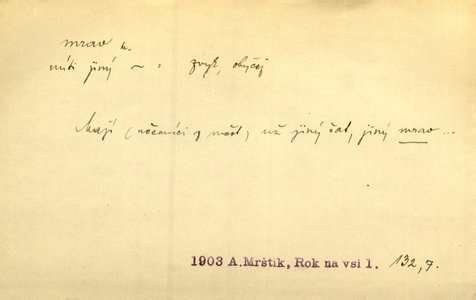 mrav
míti jiný ~ = zvyk, obyčej
Mají (učedníci z měst) už jiný šat, jiný mrav...
1903 A. Mrštík, Rok na vsi 1. 132,7.